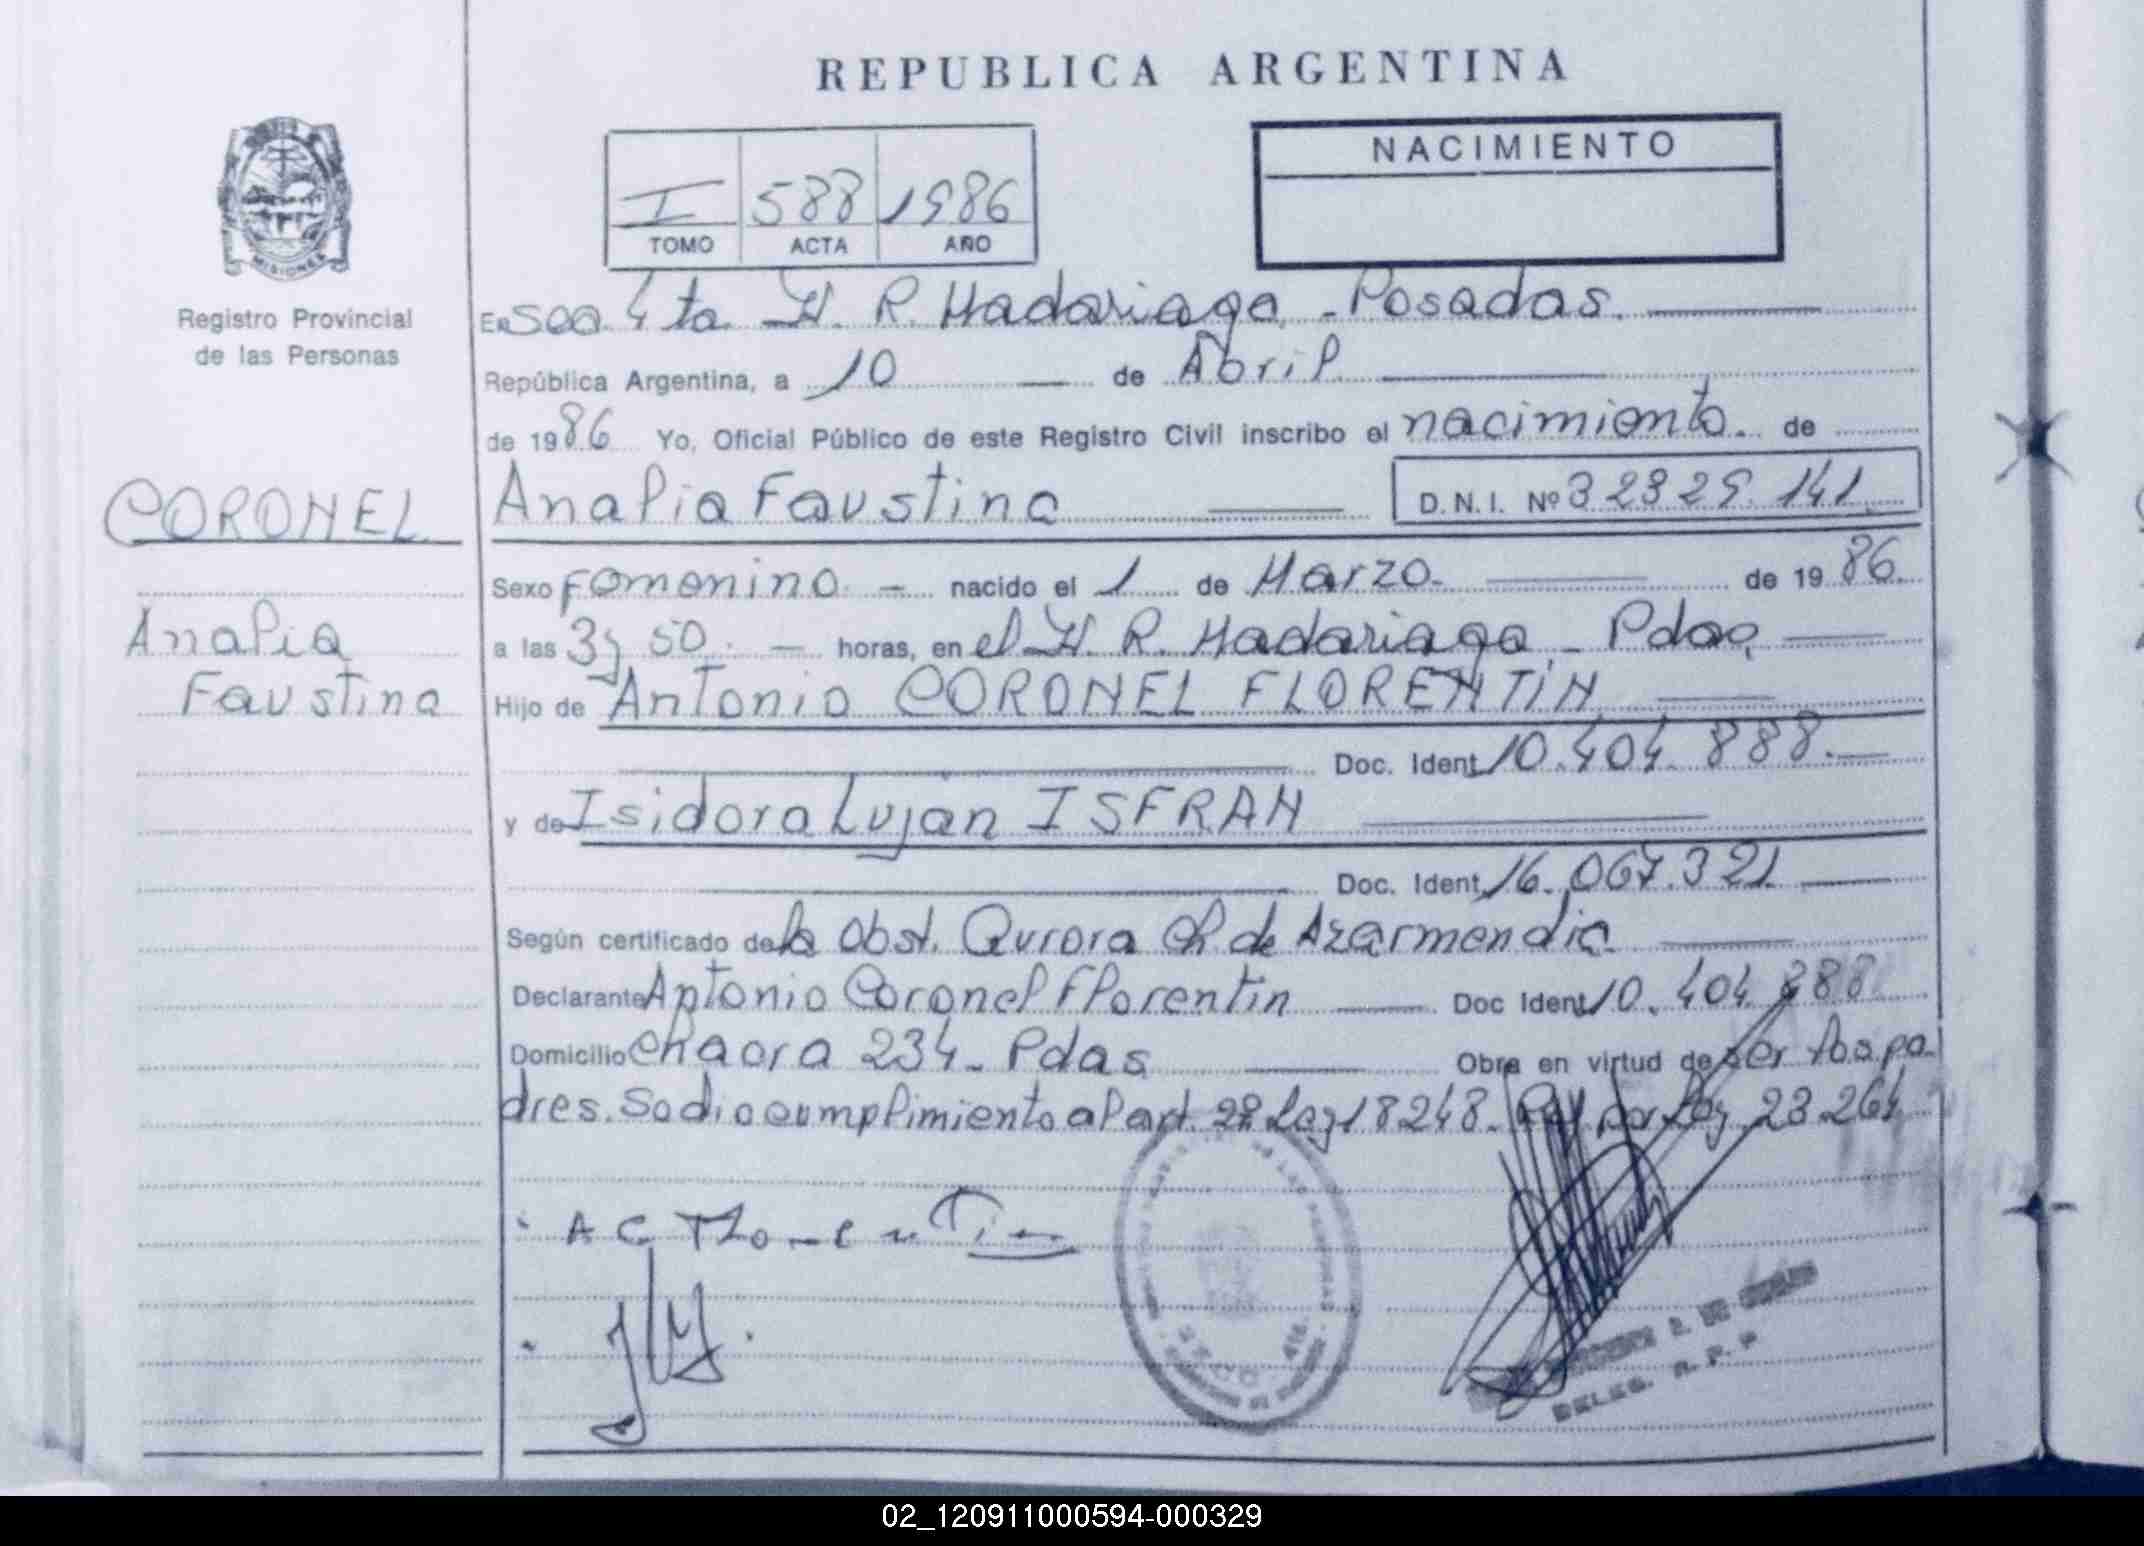 REPUBLICA ARGENTINA
I 588 1986
TOMO ACTA AÑO
NACIMIENTO
MISIONES
Registro Provincial
de las Personas
En Scc. 4 ta. H. R. Madariaga - Posadas.
República Argentina, a 10 de Abril
de 1986 Yo, Oficial Público de este Registro Civil inscribo el nacimiento. de
CORONEL
Analia Faustina D.N.I. Nº 32329.141
Sexo Femenino. - nacido el 1 de Marzo. de 1986.
Analia
a las 3 y 50. - horas, en el H. R. Madariaga - Pdas,
Faustina
Hijo de Antonio CORONEL FLORENTIN
Doc. Ident. 10.404.888.
y de Isidora Luján ISFRAN
Doc. Ident. 16.067.321.
Según certificado de la Obst. Aurora Ch. de Azarmendia
Declarante Antonio Coronel Florentin Doc Ident. 10.404.888
Domicilio Chacra 234 - Pdas Obra en virtud de ser los pa-
dres. Se dio cumplimiento al art. 2º Ley 18248. por Ley 23.264
A C Florentin
DELEG. R. P. P
02_120911000594-000329